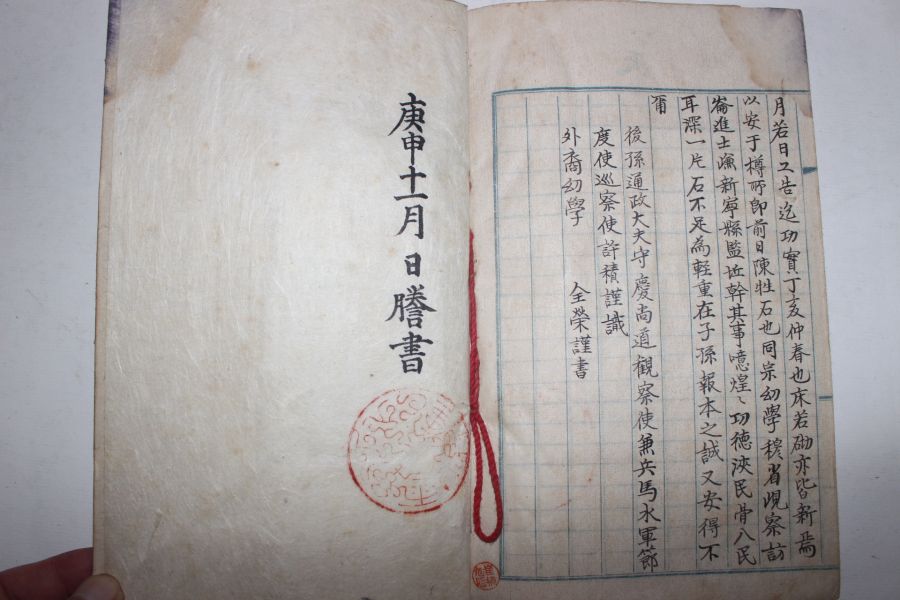 月若日工告迄功實丁亥仲春也床若砌亦皆新焉
以安于樽所即前日陳牲石也同宗幼學穆省峴察訪
崙進士濂新寧縣監近幹其事噫煌〻功德浹民骨入民
耳深一片石不足為輕重在子孫報本之誠又安得不
爾
後孫通政大夫守慶尙道觀察使兼兵馬水軍節
度使巡察使許積謹識
外裔幼學 全榮謹書
庚申十一月 日謄書